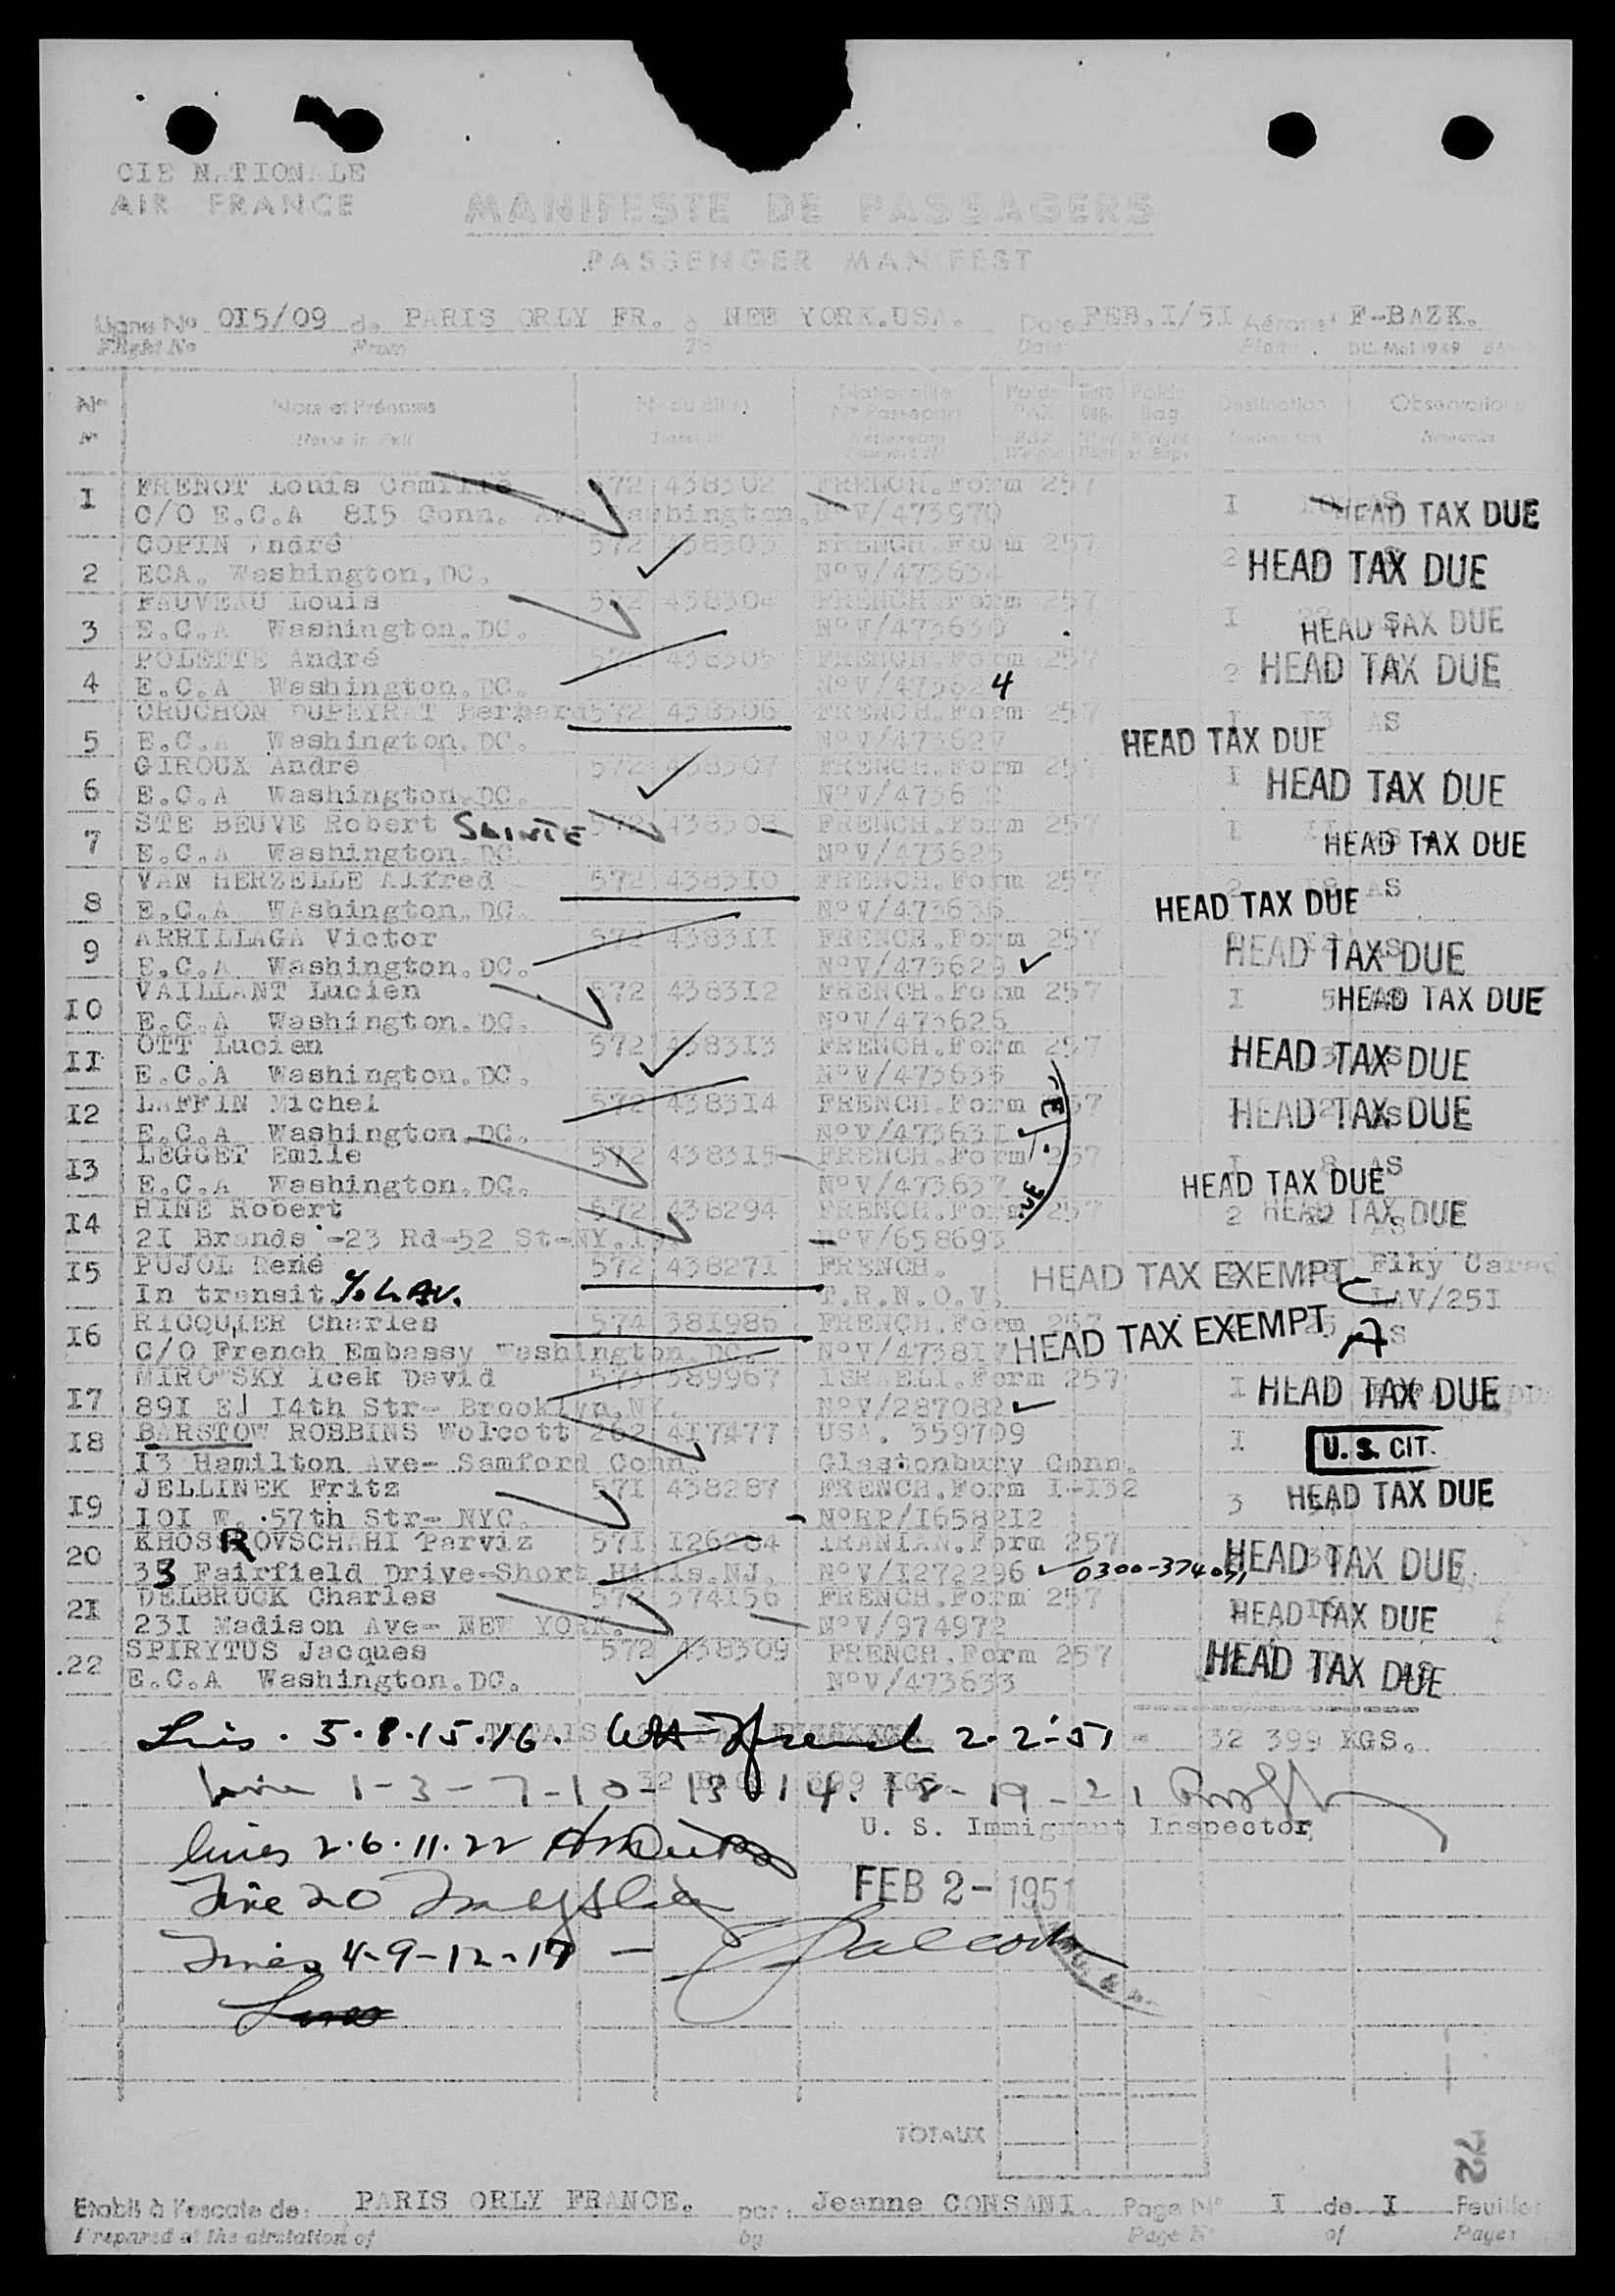 CIE NATIONALE
AIR FRANCE
MANIFESTE DE PASSAGERS
PASSENGER MANIFEST
Ligne No 0I5/09 de PARIS ORLY FR. à NEW YORK.USA. Date FEB.I/5I Aéronef F-BAZK.
Flight No From To Date Plane DC. Mai 1949
Nos Noms et Prénoms No du Billet Nationalité No Passeport Poids PAX Poids Bag. Destination Observations
No Name in Full Nationality Passport No Weight Destination Remarks
I FRENOT Louis Camille 572 438302 FRENCH.Form 257 I AS HEAD TAX DUE
C/O E.C.A 8I5 Conn. Ave Washington. NoV/473970
COPIN André 572 438303 FRENCH.Form 257 2 HEAD TAX DUE
2 ECA. Washington.DC. NoV/473634
FAUVEAU Louis 572 438304 FRENCH.Form 257 I 22 AS HEAD TAX DUE
3 E.C.A Washington.DC. NoV/473630
POLETTE André 572 438305 FRENCH.Form 257 2 HEAD TAX DUE
4 E.C.A Washington.DC. NoV/473624
CRUCHON DUPEYRAT Bernard 572 438306 FRENCH.Form 257 I I3 AS
5 E.C.A Washington.DC. NoV/473627 HEAD TAX DUE
GIROUX André 572 438307 FRENCH.Form 257 I HEAD TAX DUE
6 E.C.A Washington.DC. NoV/4736 2
STE BEUVE Robert SAINTE 572 438308 FRENCH.Form 257 I II AS HEAD TAX DUE
7 E.C.A Washington.DC. NoV/473625
VAN HERZELLE Alfred 572 4383I0 FRENCH.Form 257 2 I8 AS
8 E.C.A WAshington.DC. NoV/473636 HEAD TAX DUE
ARRILLAGA Victor 572 4383II FRENCH.Form 257 AS HEAD TAX DUE
9 E.C.A Washington.DC. NoV/473629
VAILLANT Lucien 572 4383I2 FRENCH.Form 257 I 5 HEAD TAX DUE
I0 E.C.A Washington.DC. NoV/473626
OTT Lucien 572 4383I3 FRENCH.Form 257 AS HEAD TAX DUE
II E.C.A Washington.DC. NoV/473635
LAFFIN Michel 572 4383I4 FRENCH.Form 257 AS HEAD TAX DUE
I2 E.C.A Washington.DC. NoV/47363I
LEGGET Emile 572 4383I5 FRENCH.Form 257 I 8 AS
I3 E.C.A Washington.DC. NoV/473637 HEAD TAX DUE
HINE Robert 572 438294 FRENCH.Form 257 2 AS HEAD TAX DUE
I4 2I Brands -23 Rd-52 St-NY. NoV/658693
I5 PUJOL René 572 43827I FRENCH. HEAD TAX EXEMPT Flky Carac
In transit. c/o L.AV. T.R.N.O.V. C LAV/25I
I6 RICQUIER Charles 574 38I985 FRENCH.Form 257 25 AS
C/O French Embassy Washington.DC. NoV/4738I7 HEAD TAX EXEMPT A
MIROWSKY Icek David 573 389967 ISRAELI.Form 257 I HEAD TAX DUE
I7 89I EJ I4th Str- Brooklyn.NY. NoV/287082
I8 BARSTOW ROBBINS Wolcott 262 4I7477 USA. 359709 I U.S. CIT.
I3 Hamilton Ave- Samford Conn. Glastonbury Conn.
JELLINEK Fritz 57I 438287 FRENCH.Form I-I32 3 HEAD TAX DUE
I9 I0I W. 57th Str- NYC. NoRP/I6582I2
KHOSROVSCHAHI Parviz 57I I26284 IRANIAN.Form 257 HEAD TAX DUE
20 33 Fairfield Drive-Short Hills.NJ. NoV/I272296 0300-374071
DELBRUCK Charles 572 374156 FRENCH.Form 257 HEAD TAX DUE
2I 23I Madison Ave- NEW YORK. NoV/974972
SPIRYTUS Jacques 572 438309 FRENCH.Form 257 HEAD TAX DUE
22 E.C.A Washington.DC. NoV/473633
TOTAIS = 32 399 KGS.
Lines . 5.8.15.16. French 2-2-51
32 399 KGS.
Line 1-3-7-10-13-14-18-19-21
U. S. Immigrant Inspector
lines 2.6.11.22
FEB 2- 1951
Line 20
Lines 4-9-12-17 —
TOTAUX
72
Etabli à l'escale de: PARIS ORLY FRANCE. par: Jeanne CONSANI. Page No I de I Feuilles
Prepared at the airstation of by Page No of Pages